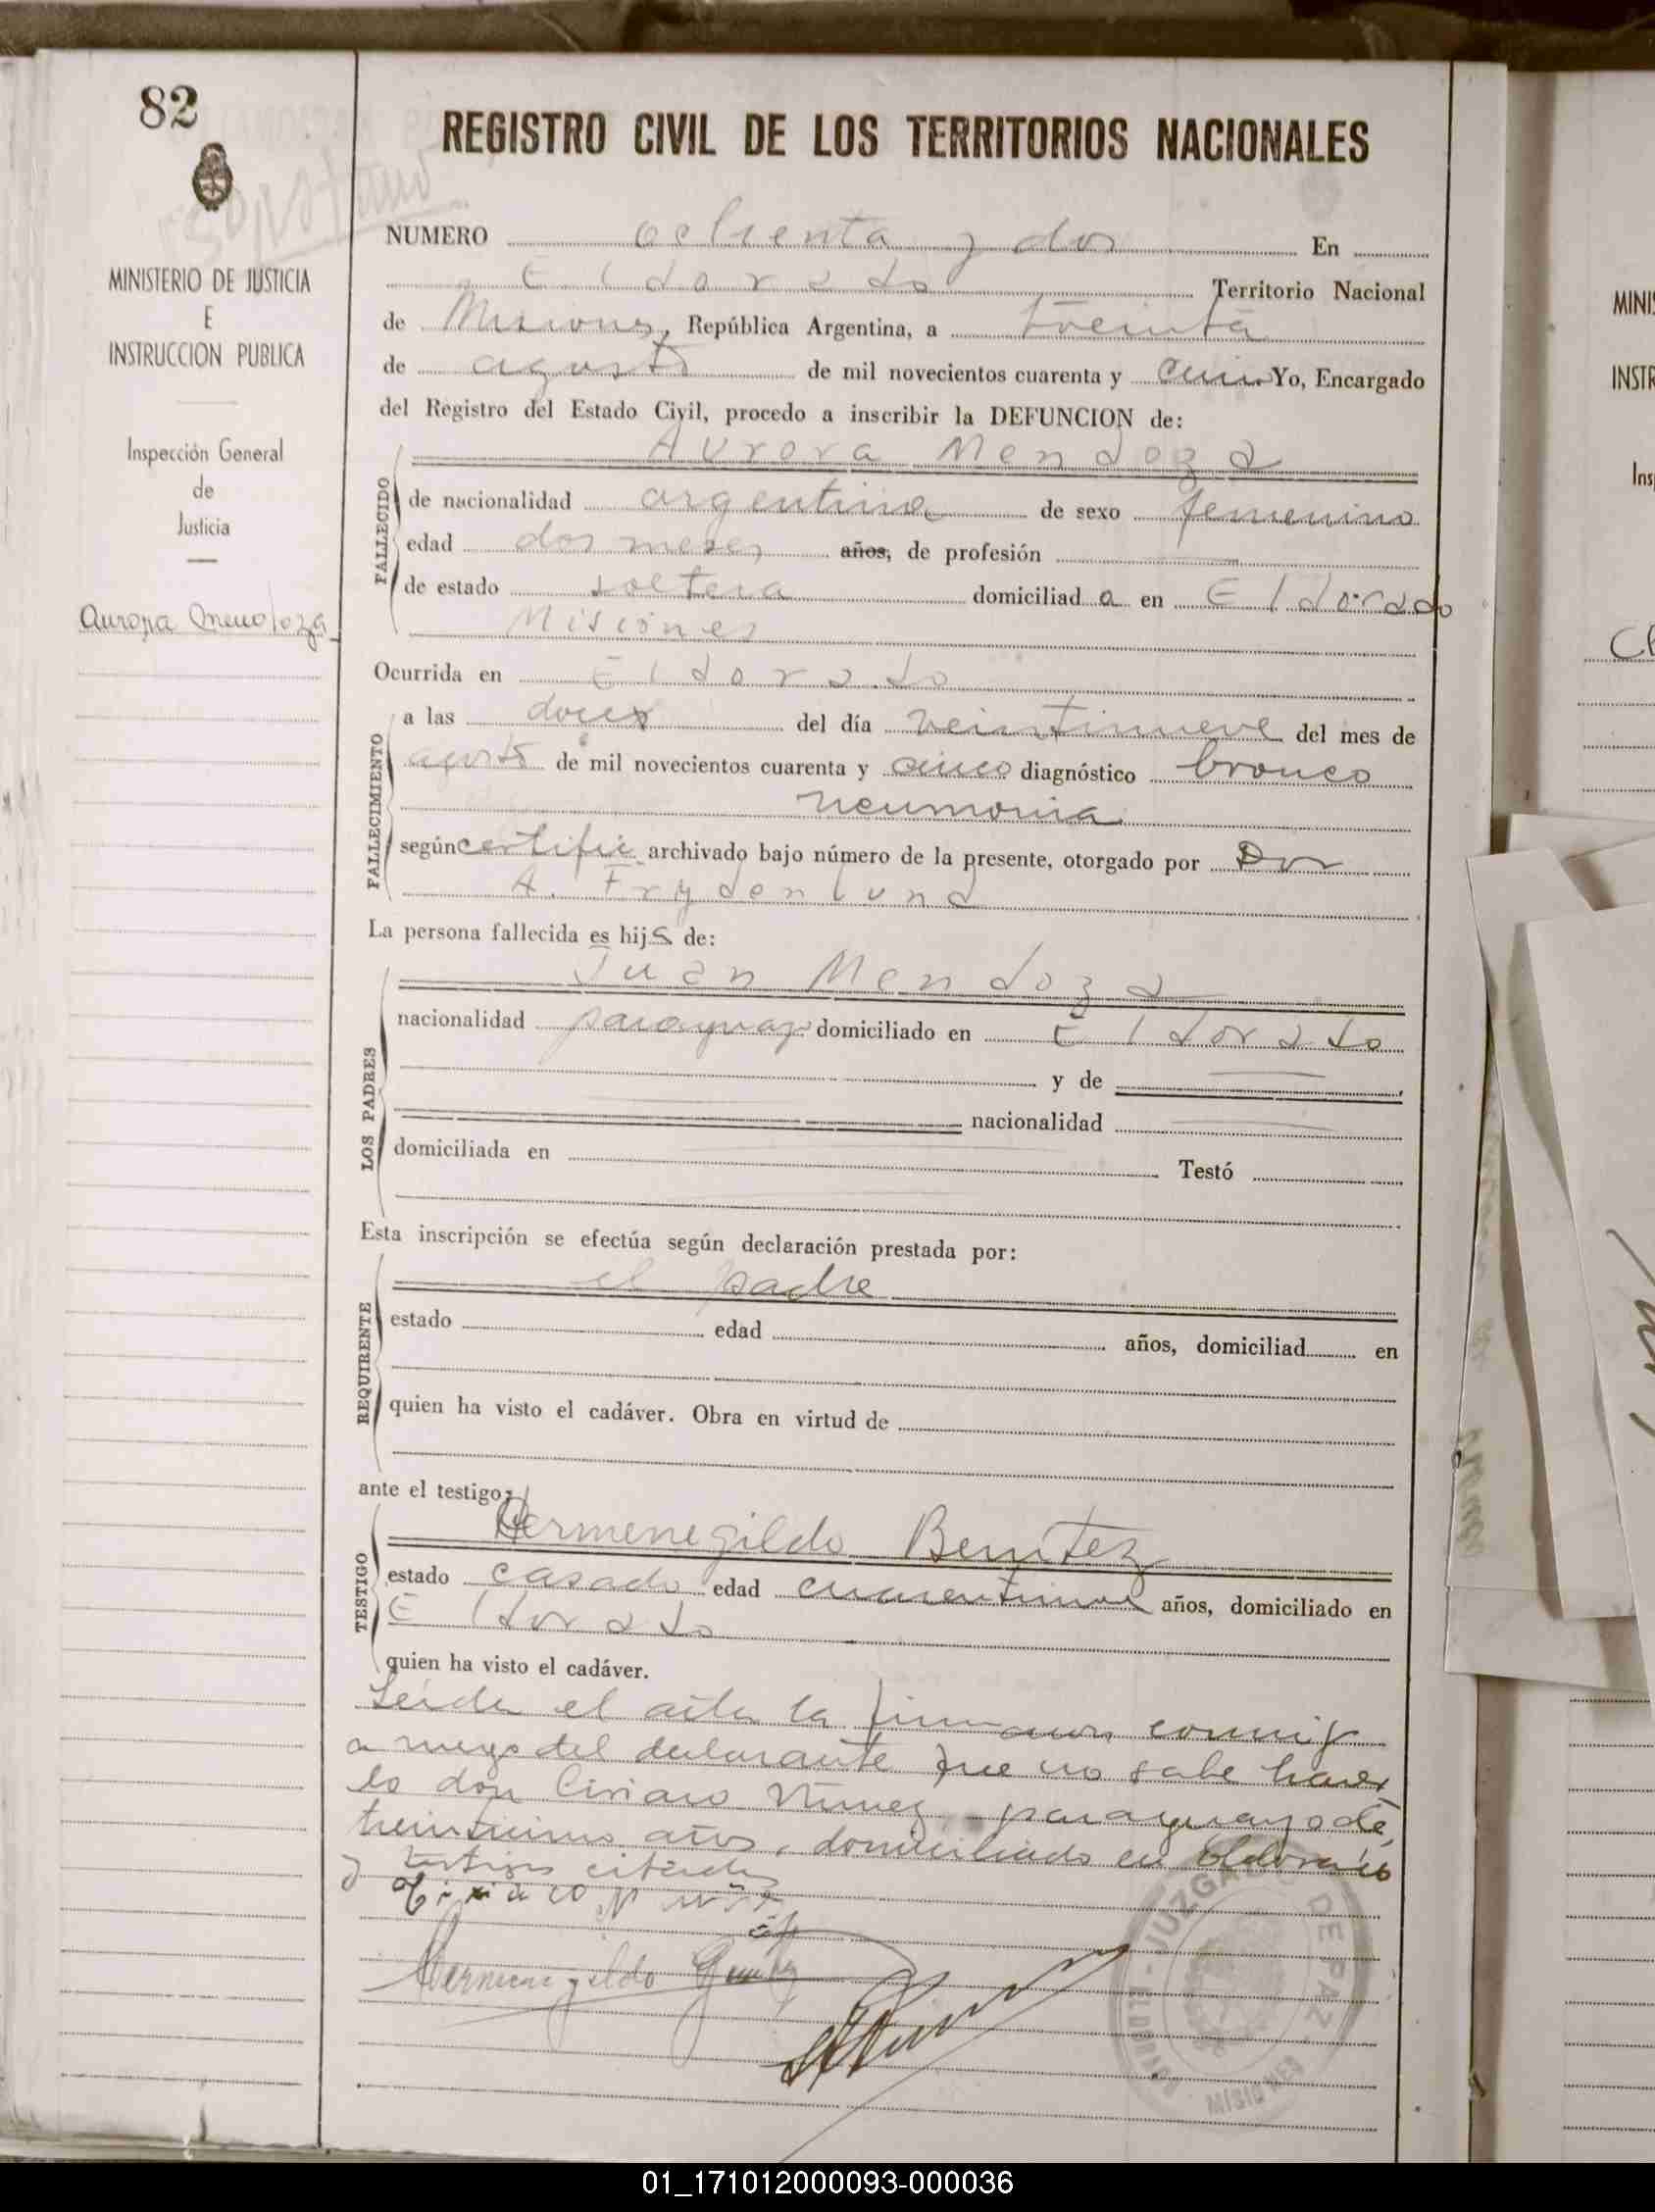 82
REGISTRO CIVIL DE LOS TERRITORIOS NACIONALES
NUMERO ochenta y dos En
Eldorado Territorio Nacional
MINISTERIO DE JUSTICIA
E
INSTRUCCION PUBLICA
de Misiones, República Argentina, a treinta
de agosto de mil novecientos cuarenta y cinco Yo, Encargado
del Registro del Estado Civil, procedo a inscribir la DEFUNCION de:
Inspección General
de
Justicia
Aurora Mendoza
FALLECIDO
Aurora Mendoza
de nacionalidad argentina de sexo femenino
edad dos meses años, de profesión
de estado soltera domiciliad a en Eldorado
Misiones
Ocurrida en Eldorado
FALLECIMIENTO
a las doce del día veintinueve del mes de
agosto de mil novecientos cuarenta y cinco diagnóstico bronco
neumonia
según certific archivado bajo número de la presente, otorgado por Dor
A. Frydenlund
La persona fallecida es hija de:
LOS PADRES
Juan Mendoza
nacionalidad paraguayo domiciliado en Eldorado
y de
nacionalidad
domiciliada en Testó
Esta inscripción se efectúa según declaración prestada por:
REQUIRENTE
el padre
estado edad años, domiciliad en
quien ha visto el cadáver. Obra en virtud de
ante el testigo:
TESTIGO
Hermenegildo Benitez
estado casado edad años, domiciliado en
Eldorado
quien ha visto el cadáver.
Leida el acta la firmaron conmigo
a ruego del declarante que no sabe hacer
lo don Ciriaco Nuñez, paraguayo de
años, domiciliado en Eldorado
y testigo citado
Hermenegildo
JUZGADO DE PAZ
ELDORADO
MISIONES
MINIS
INSTR
Ins
01_171012000093-000036